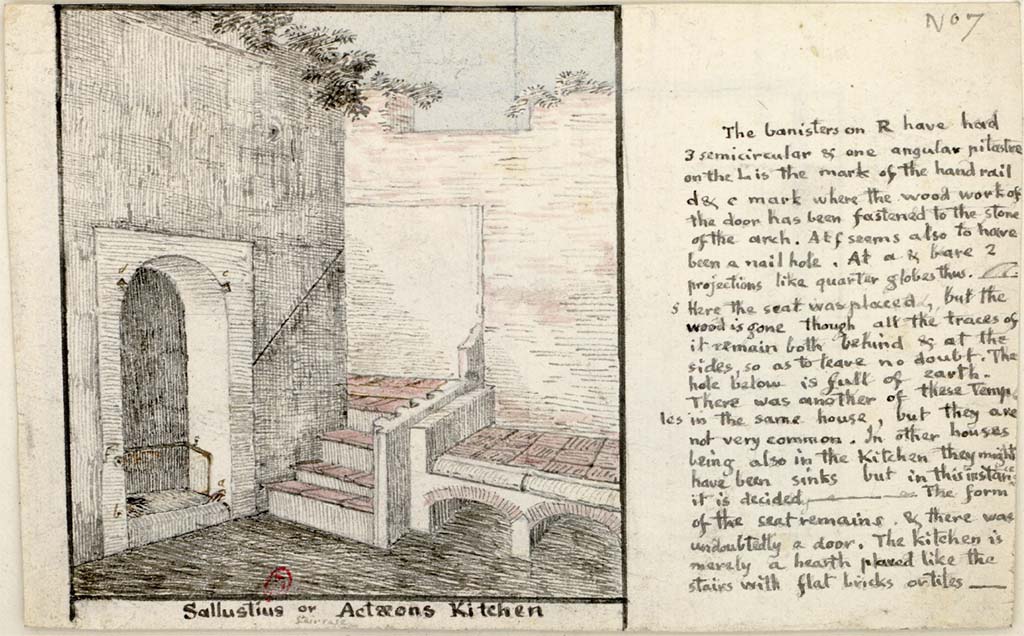 No 7
The banisters on R have had
3 semicircular & one angular pilastre
on the L is the mark of the hand rail
d & c mark where the wood work of
the door has been fastened to the stone
of the arch. At f seems also to have
been a nail hole. At a & b are 2
projections like quarter globes thus.
5 Here the seat was placed, but the
wood is gone though all the traces of
it remain both behind & at the
sides, so as to leave no doubt. The
hole below is full of earth.
There was another of these Temp
les in the same house, but they are
not very common. In other houses
being also in the Kitchen they might
have been sinks but in this instan
it is decided The form
of the seat remains. & there was
undoubtedly a door. The kitchen is
merely a hearth paved like the
stairs with flat bricks or tiles
d
c
a
b
Sallustius or Actæons Kitchen